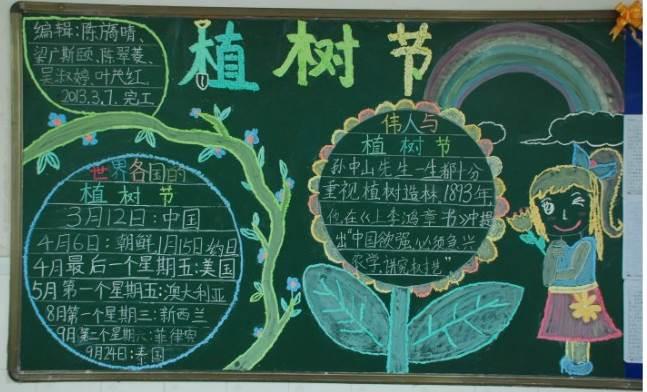 植树节
编辑:陈旖晴、
梁广斯颐、陈翠菱、
吴淑婷、叶茂红、
2013.3.7.完工
世界各国的
植树节
3月12日:中国
4月6日:朝鲜,1月15日:约旦
4月最后一个星期五:美国
5月第一个星期五:澳大利亚
8月第一个星期三:新西兰
9月第二个星期六:菲律宾
9月24日:泰国
伟人与
植树节
孙中山先生一生都十分
重视植树造林,1893年
他在《上李鸿章书》中提
出“中国欲强,必须急兴
农学,讲究树艺”